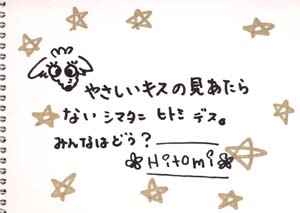 やさしいキスの見あたら
ない シマタニ ヒトミ デス。
みんなはどう?
Hitomi